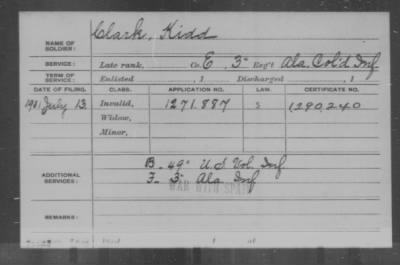 Clark, Kidd
NAME OF SOLDIER:
SERVICE: Late rank, Co. E, 3" Reg't Ala. Col'd Inf.
TERM OF SERVICE: Enlisted , 1 Discharged , 1
DATE OF FILING. CLASS. APPLICATION NO. LAW. CERTIFICATE NO.
1901 July 13. Invalid, 1271.887 S 1290,240
Widow,
Minor,
B - 49" U.S. Vol. Inf
ADDITIONAL SERVICES: F - 3" Ala Inf
WAR WITH SPAIN
REMARKS: